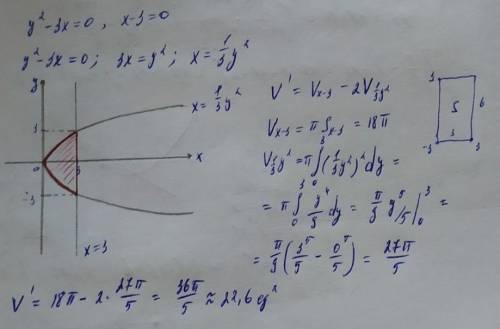 y² - 3x = 0 , x - 3 = 0
y² - 3x = 0 ; 3x = y² ; x = 1/3 y²
y
3
0
-3
3
x
x = 1/3 y²
x = 3
V' = V x=3 - 2V 1/3y²
V x=3 = π S x=3 = 18π
V 1/3y² = π ∫₀³ (1/3 y²)² dy =
= π ∫₀³ y⁴/9 dy = π/9 y⁵/5 |₀³ =
= π/9 (3⁵/5 - 0⁵/5) = 27π/5
3
S
6
3
-3
3
V' = 18π - 2 · 27π/5 = 36π/5 ≈ 22,6